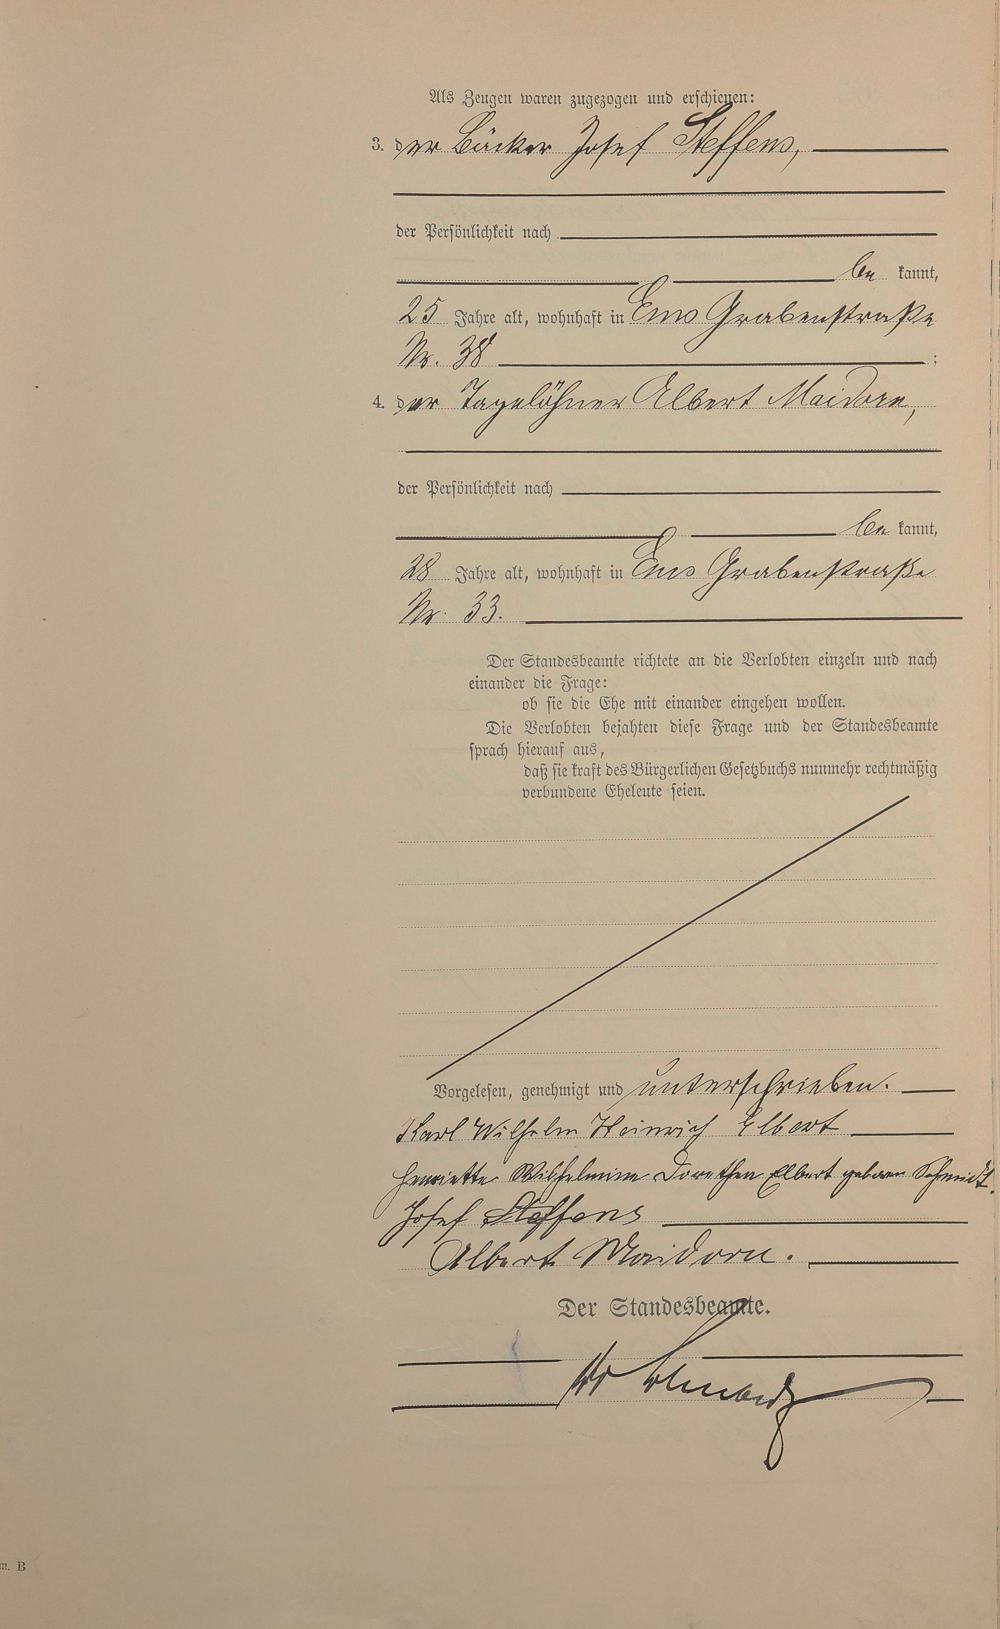 Als Zeugen waren zugezogen und erschienen:
3. der Bäcker Josef Steffens,
der Persönlichkeit nach
be kannt,
25 Jahre alt, wohnhaft in Ems Grabenstraße
Nr. 38 ;
4. der Tagelöhner Albert Maidorn,
der Persönlichkeit nach
be kannt,
28 Jahre alt, wohnhaft in Ems Grabenstraße
Nr. 33.
Der Standesbeamte richtete an die Verlobten einzeln und nach
einander die Frage:
ob sie die Ehe mit einander eingehen wollen.
Die Verlobten bejahten diese Frage und der Standesbeamte
sprach hierauf aus,
daß sie kraft des Bürgerlichen Gesetzbuchs nunmehr rechtmäßig
verbundene Eheleute seien.
Vorgelesen, genehmigt und unterschrieben.
Karl Wilhelm Heinrich Elbert
Henriette Wilhelmine Dorothea Elbert geboren Schmidt.
Josef Steffens
Albert Maidorn.
Der Standesbeamte.
m. B